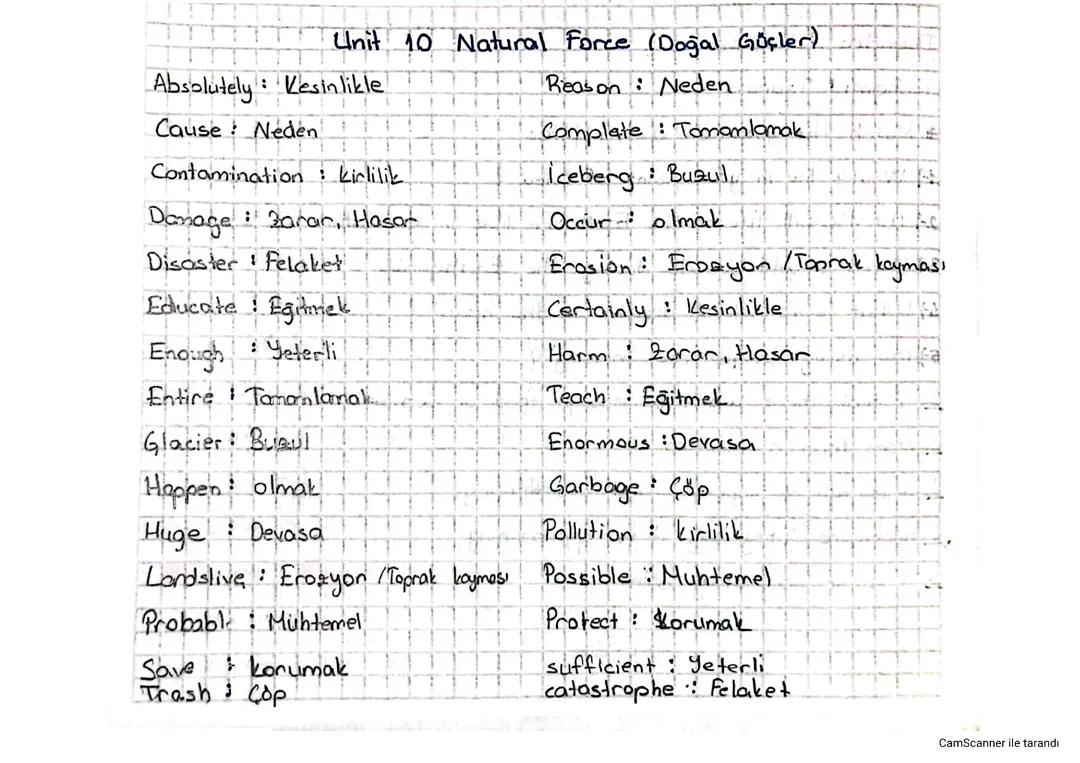 Unit 10 Natural Force (Doğal Güçler)
Absolutely : Kesinlikle
Cause : Neden
Contamination : kirlilik
Damage : Zarar, Hasar
Disaster : Felaket
Educate : Eğitmek
Enough : Yeterli
Entire : Tamamlamak
Glacier : Buzul
Happen : olmak
Huge : Devasa
Landslive : Erozyon / Toprak kayması
Probabl : Muhtemel
Save : korumak
Trash : Çöp
Reason : Neden
Complate : Tamamlamak
İceberg : Buzul
Occur : olmak
Erosion : Erozyon / Toprak kayması
Certainly : Kesinlikle
Harm : Zarar, Hasar
Teach : Eğitmek
Enormous : Devasa
Garbage : Çöp
Pollution : kirlilik
Possible : Muhtemel
Protect : Korumak
sufficient : Yeterli
catastrophe : Felaket
CamScanner ile tarandı